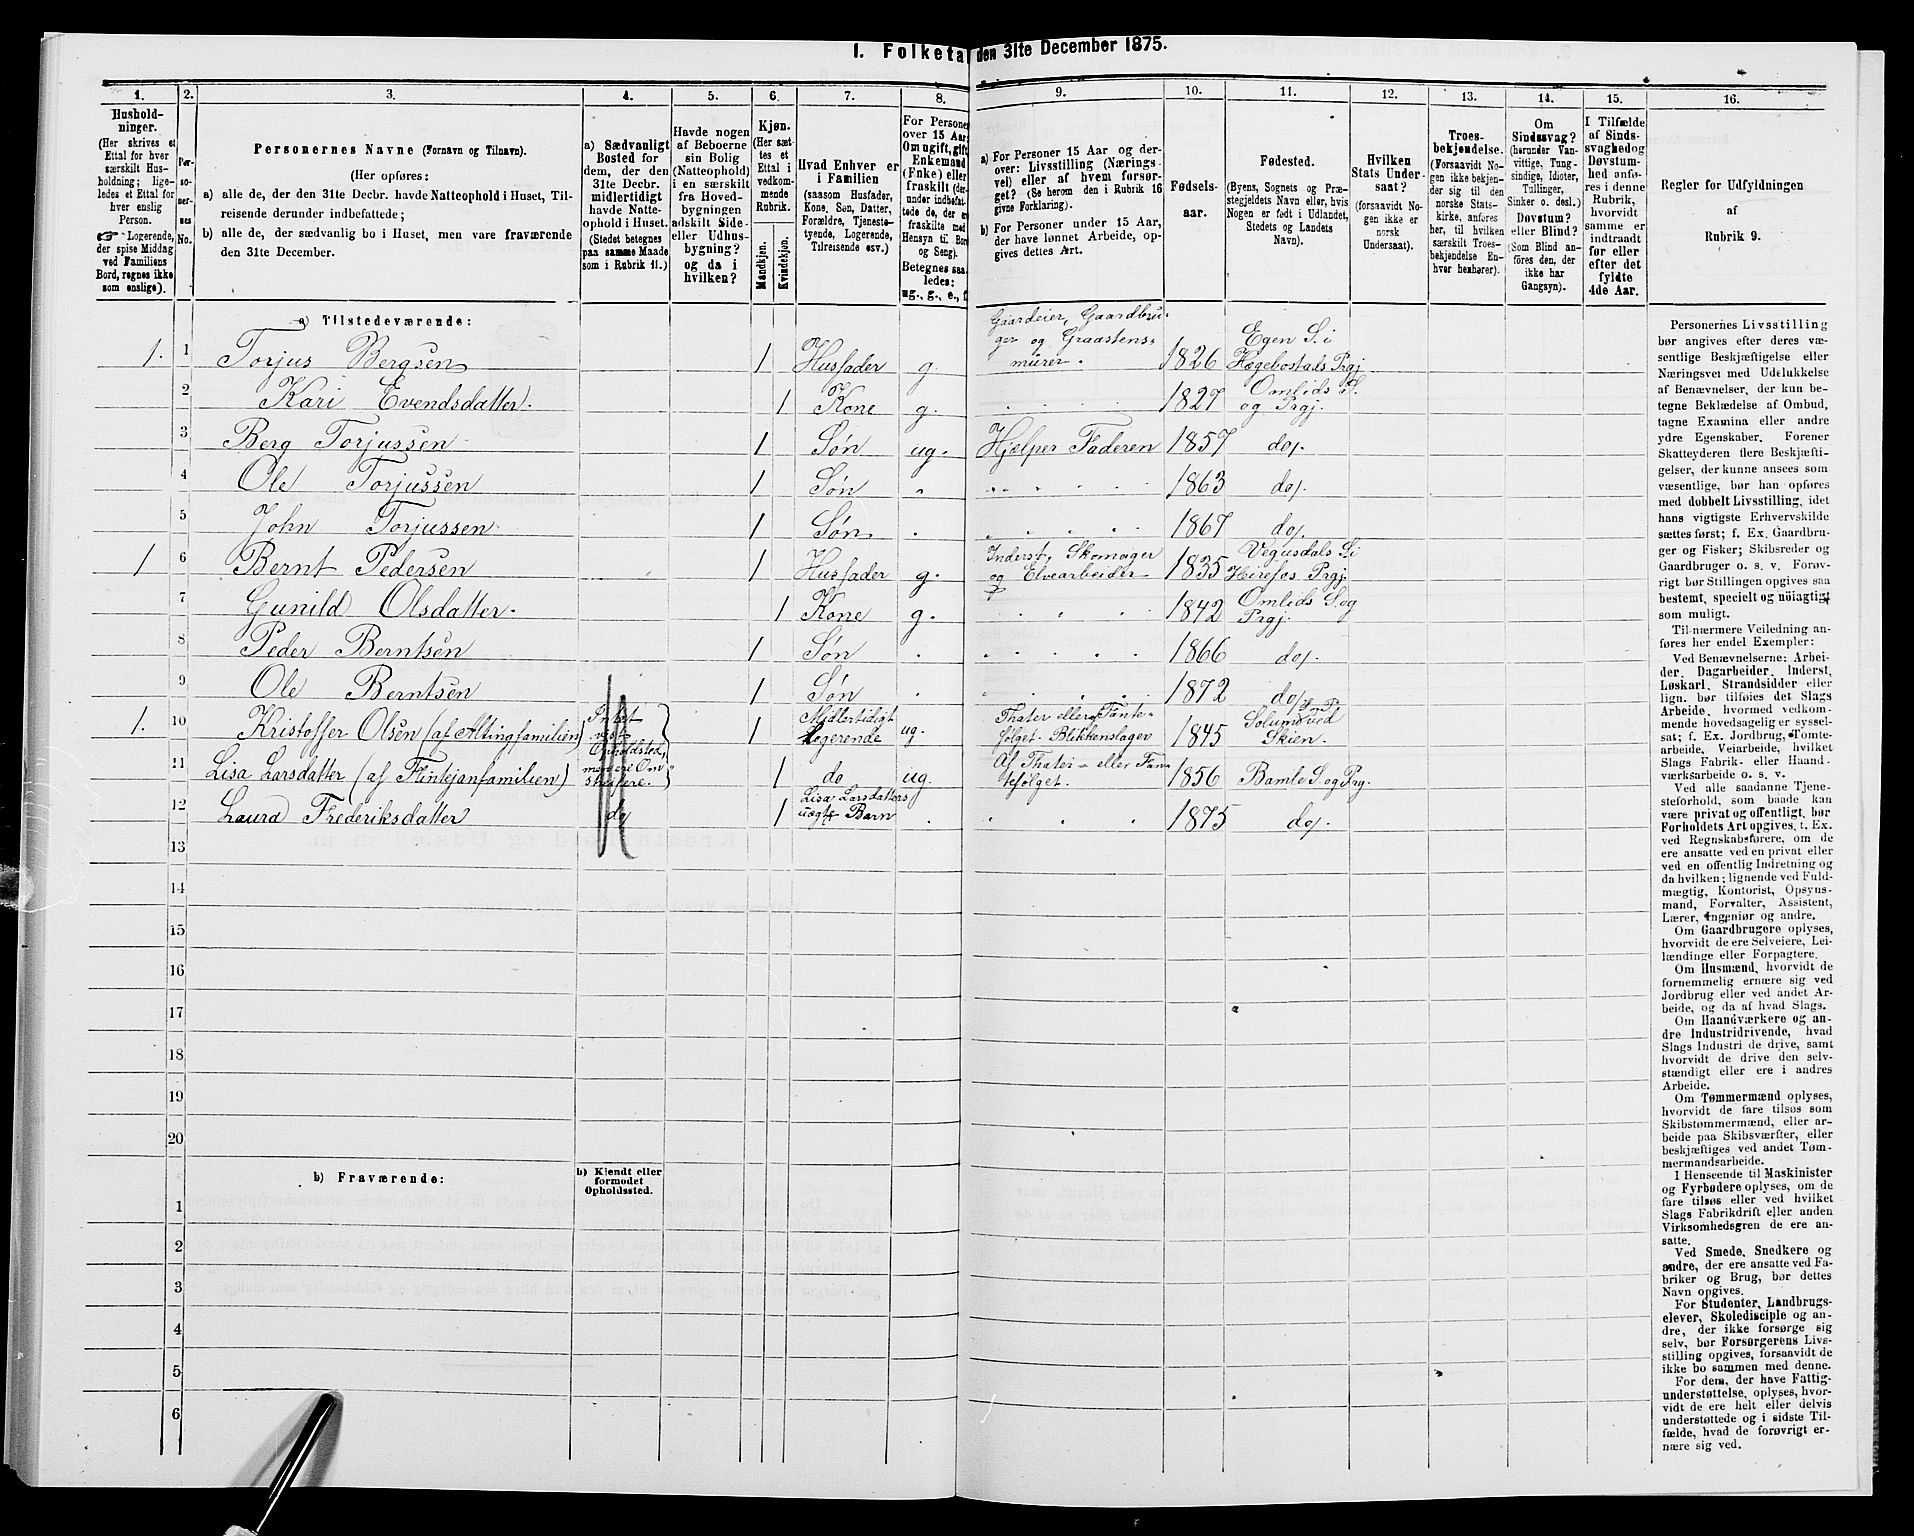 1. Folketa den 31te December 1875.
1. 2. 3. 4. 5. 6. 7. 8. 9. 10. 11. 12. 13. 14. 15. 16.
Hushold-
ninger.
(Her skrives et
Ettal for hver
særskilt Hus-
holdning; lige-
ledes et Ettal for
hver enslig
Person.
☞ Logerende,
der spise Middag
ved Familiens
Bord, regnes ikke
som enslige).
Per-
so-
ner-
nes
No.
Personernes Navne (Fornavn og Tilnavn).
(Her opføres:
a) alle de, der den 31te Decbr. havde Natteophold i Huset, Til-
reisende derunder indbefattede;
b) alle de, der sædvanlig bo i Huset, men vare fraværende
den 31te December.
a) Sædvanligt
Bosted for
dem, der den
31te Decbr.
midlertidigt
havde Natte-
ophold i Huset.
(Stedet betegnes
paa samme Maade
som i Rubrik 11.)
Havde nogen
af Beboerne
sin Bolig
(Natteophold)
i en særskilt
fra Hoved-
bygningen
adskilt Side-
eller Udhus-
bygning?
og da i
hvilken?
Kjøn.
(Her sæt-
tes et
Ettal i
vedkom-
mende
Rubrik.
Mandkjøn.
Kvindekjøn.
Hvad Enhver er
i Familien
(saasom Husfader,
Kone, Søn, Datter,
Forældre, Tjeneste-
tyende, Logerende,
Tilreisende osv.)
For Personer
over 15 Aar:
Om ugift, gift,
Enkemand
(Enke) eller
fraskilt (der-
under indbefat-
tede de, der ere
fraskilte med
Hensyn til Bord
og Seng).
Betegnes saa-
ledes:
ug., g., e., f.
a) For Personer 15 Aar og der-
over: Livsstilling (Nærings-
vei) eller af hvem forsør-
get? (Se herom den i Rubrik 16
givne Forklaring).
b) For Personer under 15 Aar,
der have lønnet Arbeide, op-
gives dettes Art.
Fødsels-
aar.
Fødested.
(Byens, Sognets og Præ-
stegjeldets Navn eller, hvis
Nogen er født i Udlandet,
Stedets og Landets
Navn).
Hvilken
Stats Under-
saat?
(forsaavidt No-
gen ikke er
norsk
Undersaat).
Troes-
bekjendelse.
(Forsaavidt No-
gen ikke bekjen-
der sig til den
norske Stats-
kirke, anføres
her, til hvilken
særskilt Troes-
bekjendelse En-
hver henhører).
Om
Sindssvag?
(herunder Van-
vittige, Tung-
sindige, Idioter,
Tullinger,
Sinker o. desl.)
Døvstum?
eller Blind?
(Som Blind an-
føres den, der
ikke har
Gangsyn).
I Tilfælde
af Sinds-
svaghed og
Døvstum-
hed anfø-
res i denne
Rubrik,
hvorvidt
samme er
indtraadt
før eller
efter det
fyldte
4de Aar.
Regler for Udfyldningen
af
Rubrik 9.
a) Tilstedeværende:
1. 1 Torjus Bergsen 1 Husfader g. Gaardeier, Gaardbru-
ger og Graastens-
murer. 1826 Egen S. i
Hægebostads Prgj
2 Kari Evendsdatter. 1 Kone g. 1827 Omlids S.
og Prgj.
3 Berg Torjussen 1 Søn ug. Hjælper Faderen 1857 do.
4 Ole Torjussen 1 Søn " 1863 do.
5 John Torjussen 1 Søn . 1867 do.
1 6 Bernt Pedersen 1 Husfader g. Inderst, Skomager
og Elvearbeider 1835 Vegusdals S. i
Heirefos Prgj.
7 Gunild Olsdatter. 1 Kone g. 1842 Omlids S. og
Prgj.
8 Peder Berntsen 1 Søn . 1866 do.
9 Ole Berntsen 1 Søn . 1872 do.
1. 10 Kristoffer Olsen (af Altingfamilien) Intet
vist
Opholdsted,
men ere Om-
streifere. 1 Midlertidigt
Logerende ug. Thater eller Fante-
følget. Blikkenslager 1845 Solum S. og P.
ved Skien.
11 Lisa Larsdatter (af Flintejanfamilien) 1 do ug. Af Thater- eller Fan-
tefølget. 1856 Bamle S. og Prg.
12 Laura Frederiksdatter do 1 Lisa Larsdatters
uægte Barn . 1875 do.
13
14
15
16
17
18
19
20
b) Fraværende:
b) Kjendt eller
formodet
Opholdssted.
1
2
3
4
5
6
Personernes Livsstilling
bør angives efter deres væ-
sentlige Beskjæftigelse eller
Næringsvei med Udelukkelse
af Benævnelser, der kun be-
tegne Beklædelse af Ombud,
tagne Examina eller andre
ydre Egenskaber. Forener
Skatteyderen flere Beskjæfti-
gelser, der kunne ansees som
væsentlige, bør han opføres
med dobbelt Livsstilling, idet
hans vigtigste Erhvervskilde
sættes først; f. Ex. Gaardbru-
ger og Fisker; Skibsreder og
Gaardbruger o. s. v. Forøv-
rigt bør Stillingen opgives saa
bestemt, specielt og nöiagtigt
som muligt.
Til nærmere Veiledning an-
føres her endel Exempler:
Ved Benævnelserne: Arbei-
der, Dagarbeider, Inderst,
Løskarl, Strandsidder eller
lign. bør tilføies det Slags
Arbeide, hvormed vedkom-
mende hovedsagelig er syssel-
sat; f. Ex. Jordbrug, Tomte-
arbeide, Veiarbeide, hvilket
Slags Fabrik- eller Haand-
værksarbeide o. s. v.
Ved alle saadanne Tjene-
steforhold, som baade kan
være privat og offentligt, bør
Forholdets Art opgives, t. Ex.
ved Regnskabsførere, om de
ere ansatte ved en privat eller
ved en offentlig Indretning og
da hvilken; lignende ved Fuld-
mægtig, Kontorist, Opsyns-
mand, Forvalter, Assistent,
Lærer, Ingeniør og andre.
Om Gaardbrugere oplyses,
hvorvidt de ere Selveiere, Lei-
lændinge eller Forpagtere.
Om Husmænd, hvorvidt de
fornemmelig ernære sig ved
Jordbrug eller ved andet Ar-
beide, og da af hvad Slags.
Om Haandværkere og an-
dre Industridrivende, hvad
Slags Industri de drive, samt
hvorvidt de drive den selv-
stændigt eller ere i andres
Arbeide.
Om Tømmermænd oplyses,
hvorvidt de fare tilsøs som
Skibstømmermænd, eller ar-
beide paa Skibsværfter, eller
beskjæftiges ved andet Tøm-
mermandsarbeide.
I Henseende til Maskinister
og Fyrbødere oplyses, om de
fare tilsøs eller ved hvilket
Slags Fabrikdrift eller anden
Virksomhedsgren de ere an-
satte.
Ved Smede, Snedkere og
andre, der ere ansatte ved Fa-
briker og Brug, bør dettes
Navn opgives.
For Studenter, Landbrugs-
elever, Skoledisciple og an-
dre, der ikke forsørge sig
selv, bør Forsørgerens Livs-
stilling opgives, forsaavidt de
ikke bo sammen med denne.
For dem, der have Fattig-
understøttelse, oplyses, hvor-
vidt de ere helt eller delvis
understøttede og i sidste Til-
fælde, hvad de forøvrigt er-
nære sig ved.